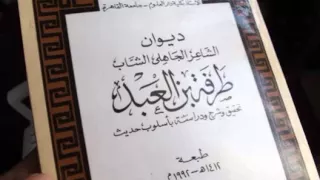 كلية دار العلوم - جامعة القاهرة
ديوان
الشاعر الجاهلي الشاب
طرفة بن العبد
تحقيق وشرح ودراسة بأسلوب حديث
طبعة
١٤١٢هـ - ١٩٩٢م